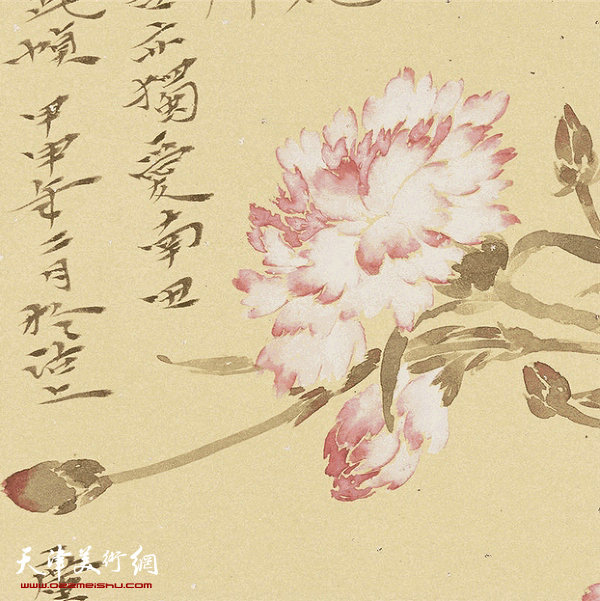 亦獨愛南田
甲申年二月於沽上
天津美術網
www.022meishu.com